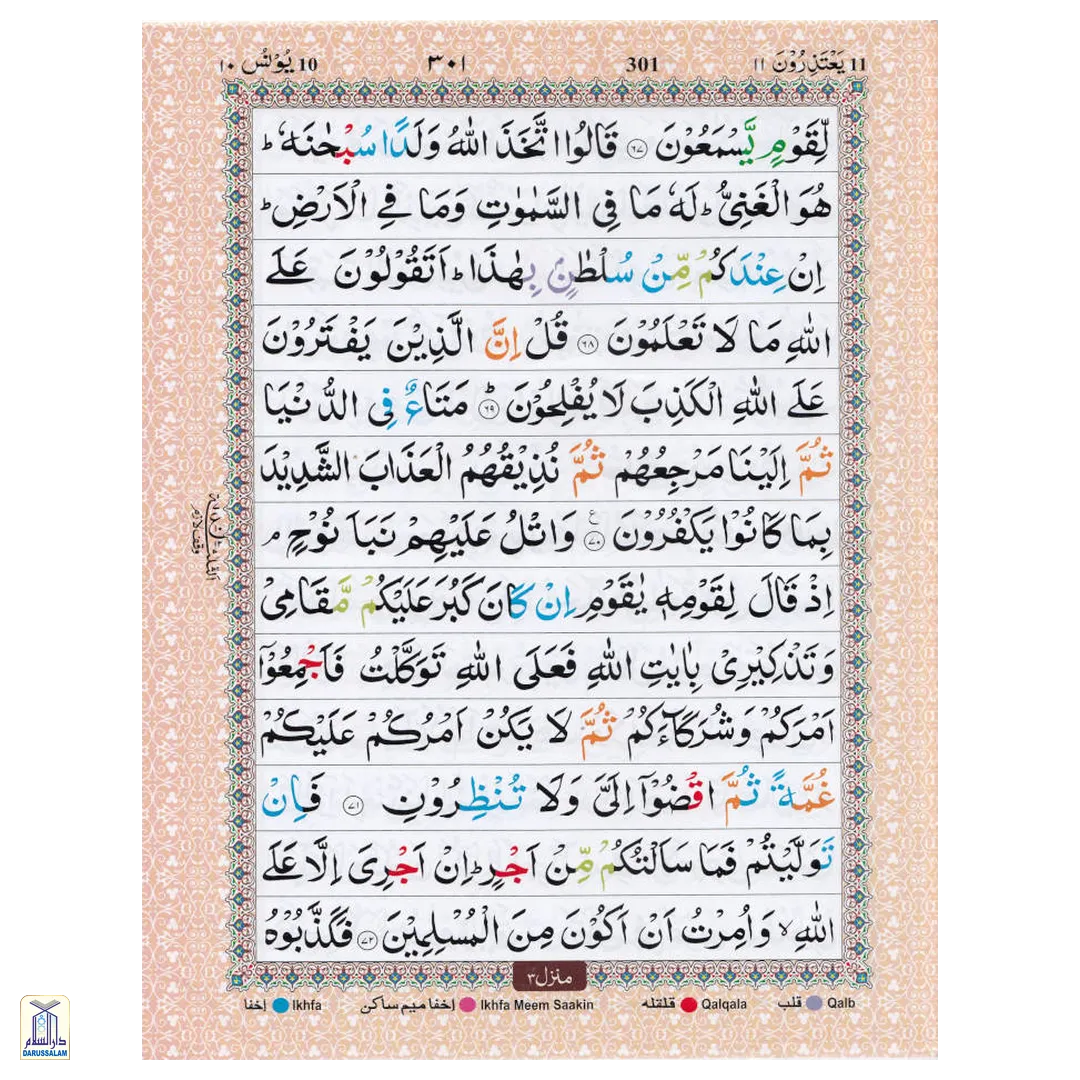 11 يَعْتَذِرُوْنَ ۱۱ 301 ۳۰۱ 10 يُوْنُسُ ۱۰
لِّقَوْمٍ يَّسْمَعُوْنَ ﴿۶۷﴾ قَالُوا اتَّخَذَ اللّٰهُ وَلَدًا سُبْحٰنَهٗ ؕ
هُوَ الْغَنِىُّ ؕ لَهٗ مَا فِى السَّمٰوٰتِ وَمَا فِى الْاَرْضِ ؕ
اِنْ عِنْدَكُمْ مِّنْ سُلْطٰنٍۭ بِهٰذَا ؕ اَتَقُوْلُوْنَ عَلَى
اللّٰهِ مَا لَا تَعْلَمُوْنَ ﴿۶۸﴾ قُلْ اِنَّ الَّذِيْنَ يَفْتَرُوْنَ
عَلَى اللّٰهِ الْكَذِبَ لَا يُفْلِحُوْنَ ؕ ﴿۶۹﴾ مَتَاعٌ فِى الدُّنْيَا
ثُمَّ اِلَيْنَا مَرْجِعُهُمْ ثُمَّ نُذِيْقُهُمُ الْعَذَابَ الشَّدِيْدَ
بِمَا كَانُوْا يَكْفُرُوْنَ ﴿۷۰﴾ ع وَاتْلُ عَلَيْهِمْ نَبَاَ نُوْحٍ ۘ
اِذْ قَالَ لِقَوْمِهٖ يٰقَوْمِ اِنْ كَانَ كَبُرَ عَلَيْكُمْ مَّقَامِىْ
وَتَذْكِيْرِىْ بِاٰيٰتِ اللّٰهِ فَعَلَى اللّٰهِ تَوَكَّلْتُ فَاَجْمِعُوْۤا
اَمْرَكُمْ وَشُرَكَآءَكُمْ ثُمَّ لَا يَكُنْ اَمْرُكُمْ عَلَيْكُمْ
غُمَّةً ثُمَّ اقْضُوْۤا اِلَىَّ وَلَا تُنْظِرُوْنِ ﴿۷۱﴾ فَاِنْ
تَوَلَّيْتُمْ فَمَا سَاَلْتُكُمْ مِّنْ اَجْرٍ ؕ اِنْ اَجْرِىَ اِلَّا عَلَى
اللّٰهِ ۙ وَاُمِرْتُ اَنْ اَكُوْنَ مِنَ الْمُسْلِمِيْنَ ﴿۷۲﴾ فَكَذَّبُوْهُ
منزل ۳
إخفا Ikhfa إخفا ميم ساكن Ikhfa Meem Saakin قلقله Qalqala قلب Qalb
دارالسلام
DARUSSALAM